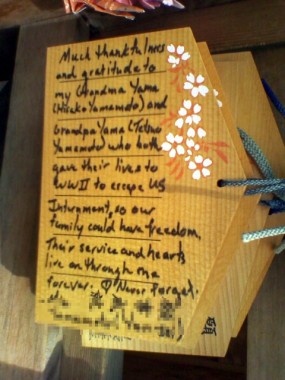 Much thankfulness
and gratitude to
my Grandma Yama
(Hisako Yamamoto) and
Grandpa Yama (Tetsuo
Yamamoto) who both
gave their lives to
WWII to escape US
Internment, so our
family could have freedom.
Their service and hearts
live on through me
forever. Never Forget.